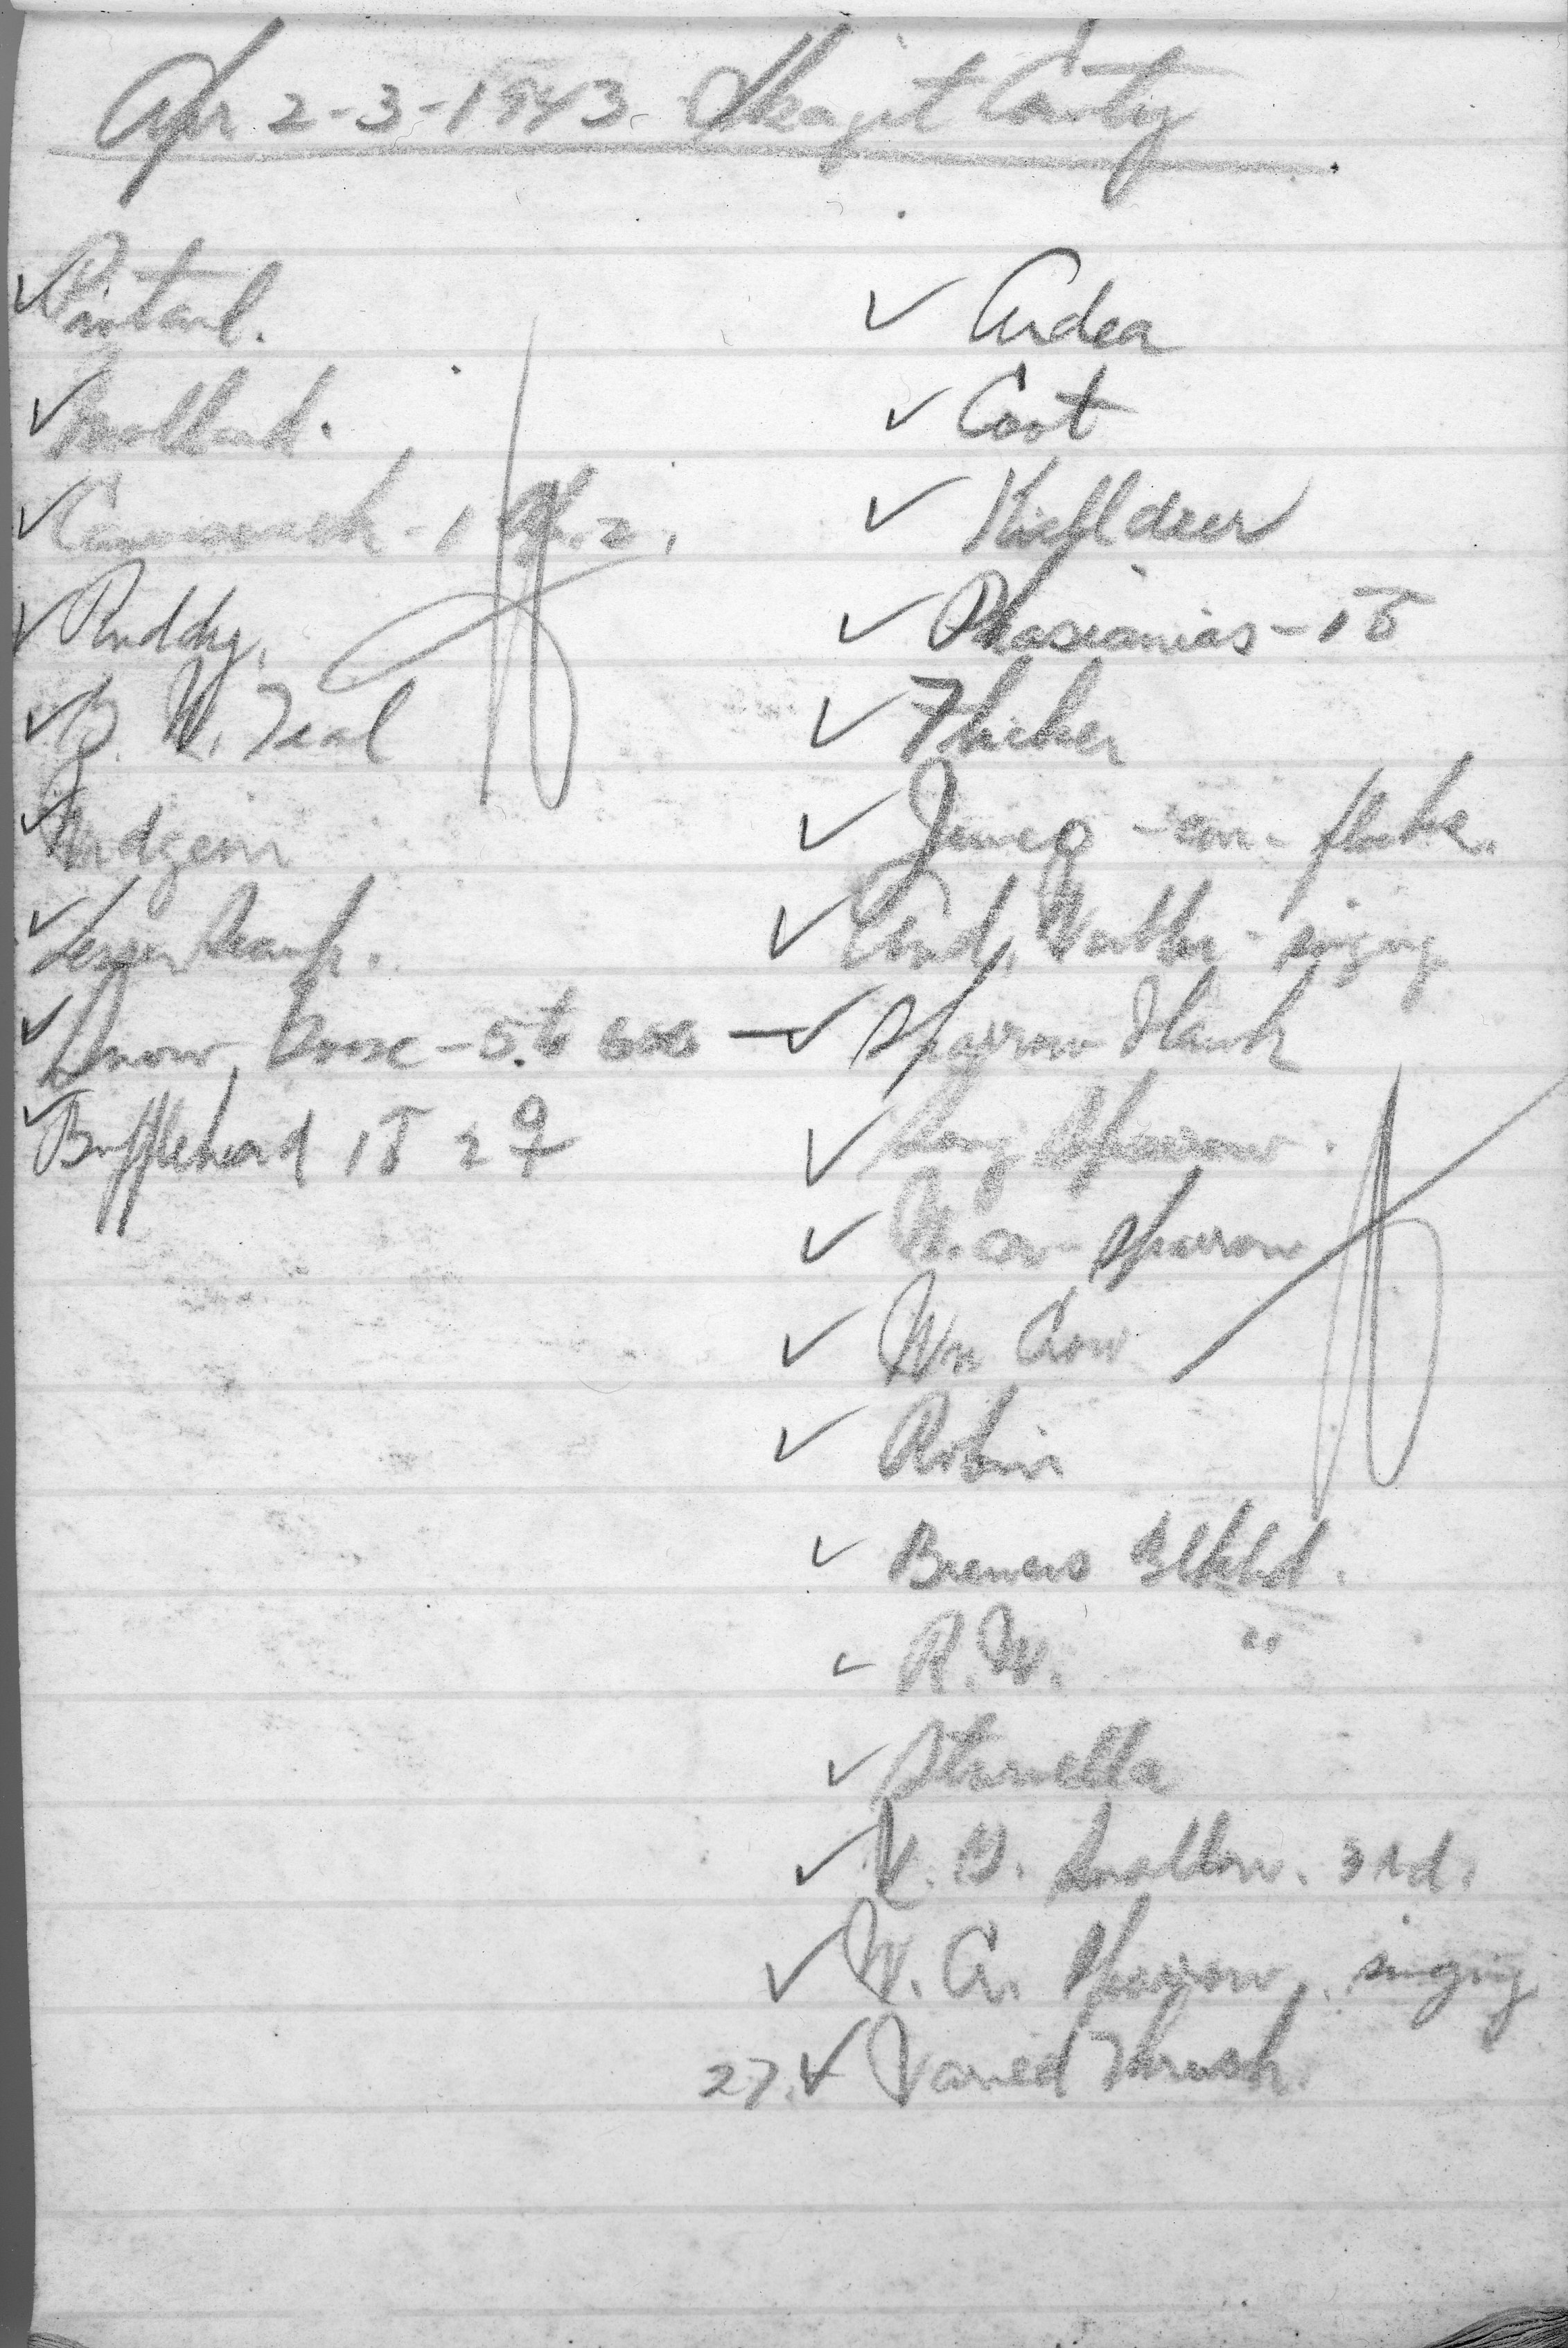 Apr 2-3-1943. Skagit County
✓ Pintail.
✓ Mallard.
✓ Canvasback - 1 Ap. 2.
✓ Ruddy.
✓ G. W. Teal
✓ Widgeon
✓ Lesser Scaup.
✓ Snow Goose - 5 to 600
✓ Bufflehead 1♂ 2♀
✓ Ardea
✓ Coot
✓ Killdeer
✓ Phasianus - 1♂
✓ Flicker
✓ Junco - flocks.
✓ Aud. Warbler - singing
✓ Sparrow Hawk
✓ Song Sparrow.
✓ Sparrow
✓ Wn Crow
✓ Robin
✓ Brewers Blkbd.
✓ R. W. "
✓ Sturnella
✓ V. G. Swallow. 3rd.
✓ W. Cr. Sparrow, singing
27. ✓ Varied Thrush.